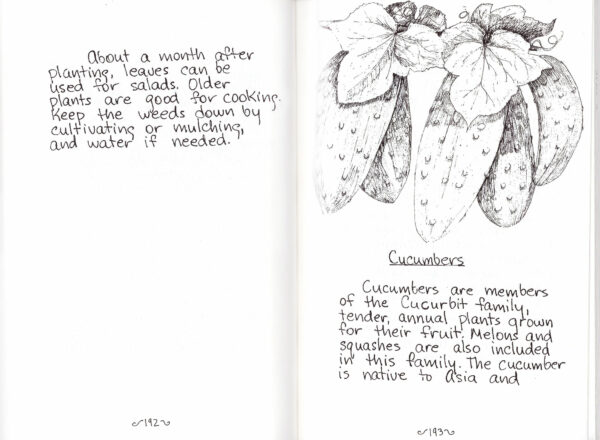 About a month after
planting, leaves can be
used for salads. Older
plants are good for cooking.
Keep the weeds down by
cultivating or mulching,
and water if needed.
192
Cucumbers
Cucumbers are members
of the Cucurbit family,
tender, annual plants grown
for their fruit. Melons and
squashes are also included
in this family. The cucumber
is native to Asia and
193